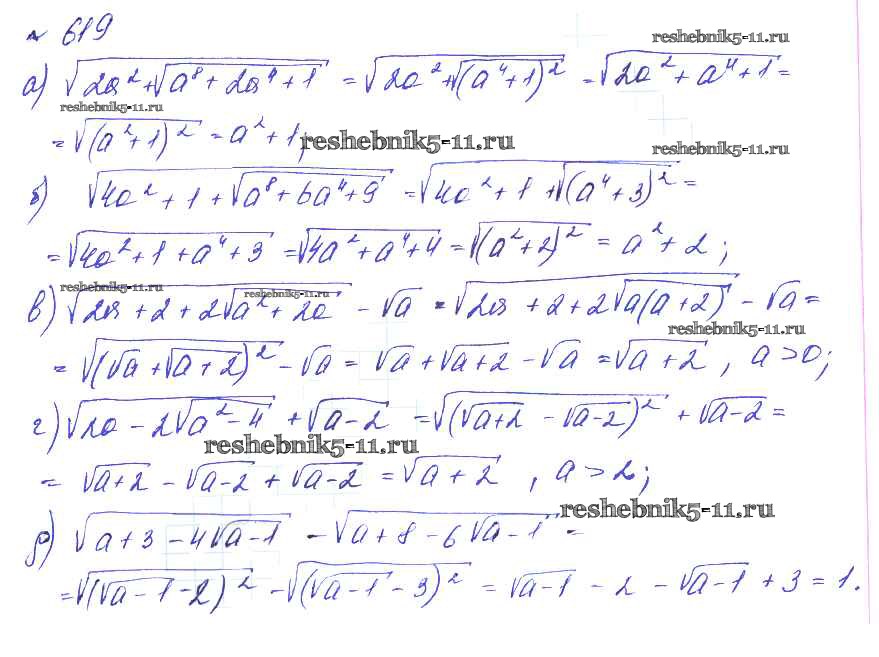 № 619
reshebnik5-11.ru
а) √(2a² + √(a⁸ + 2a⁴ + 1)) = √(2a² + √((a⁴+1)²)) = √(2a² + a⁴ + 1) =
reshebnik5-11.ru
= √((a²+1)²) = a² + 1;
reshebnik5-11.ru
reshebnik5-11.ru
б) √(4a² + 1 + √(a⁸ + 6a⁴ + 9)) = √(4a² + 1 + √((a⁴+3)²)) =
= √(4a² + 1 + a⁴ + 3) = √(4a² + a⁴ + 4) = √((a²+2)²) = a² + 2;
reshebnik5-11.ru
reshebnik5-11.ru
в) √(2a + 2 + 2√(a² + 2a)) - √a = √(2a + 2 + 2√(a(a+2))) - √a =
reshebnik5-11.ru
= √((√a + √(a+2))²) - √a = √a + √(a+2) - √a = √(a+2), a > 0;
г) √(2a - 2√(a² - 4)) + √(a-2) = √((√(a+2) - √(a-2))²) + √(a-2) =
reshebnik5-11.ru
= √(a+2) - √(a-2) + √(a-2) = √(a+2), a > 2;
reshebnik5-11.ru
д) √(a + 3 - 4√(a-1)) - √(a + 8 - 6√(a-1)) =
= √((√(a-1) - 2)²) - √((√(a-1) - 3)²) = √(a-1) - 2 - √(a-1) + 3 = 1.